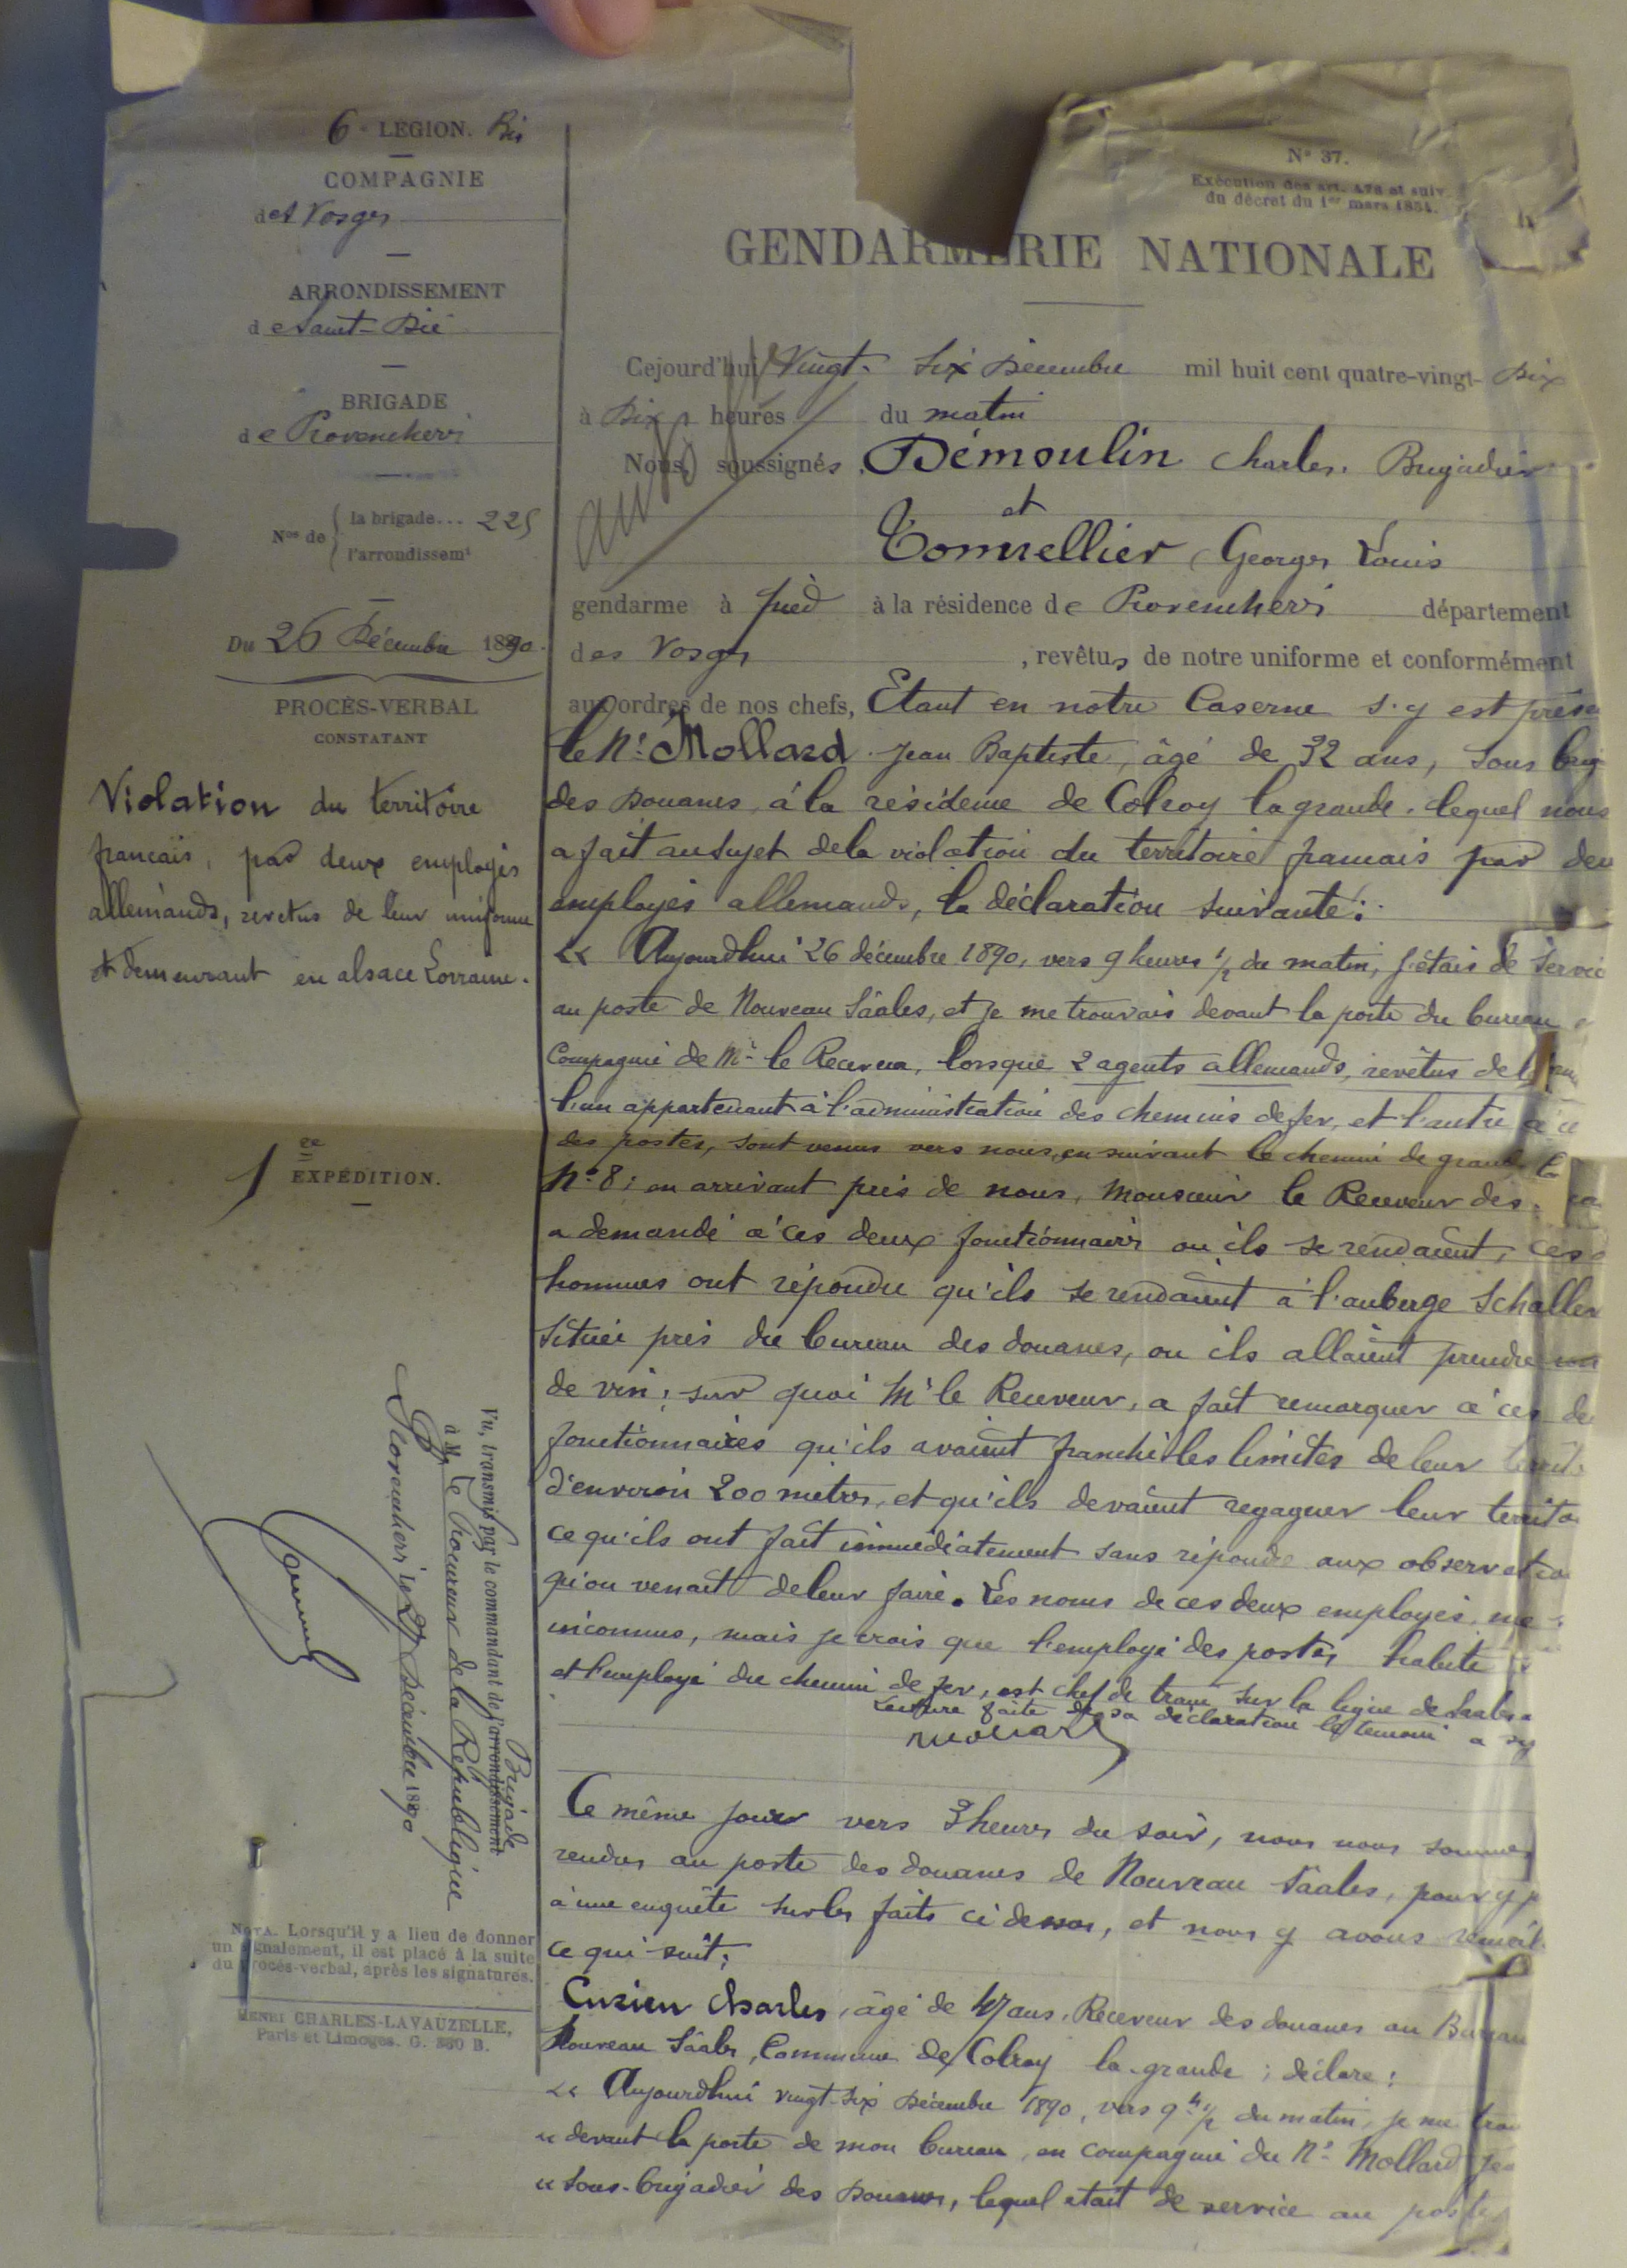 6e LÉGION. Bis
COMPAGNIE
des Vosges
ARRONDISSEMENT
de Saint-Dié
BRIGADE
de Provenchères
Nos de
la brigade... 225
l'arrondissemt
Du 26 Décembre 1890.
PROCÈS-VERBAL
CONSTATANT
Violation du territoire
francais, par deux employés
allemands, revetus de leur uniforme
et demeurant en alsace Lorraine.
1re
EXPÉDITION.
Vu, transmis par le commandant de l'arrondissement
Brigade
à Mr le Procureur de la République
Provenchères le 27 Décembre 1890
NOTA. Lorsqu'il y a lieu de donner
un signalement, il est placé à la suite
du procès-verbal, après les signatures.
HENRI CHARLES-LAVAUZELLE,
Paris et Limoges. G. 330 B.
No 37.
Exécution des art. 476 et suiv.
du décret du 1er mars 1854.
GENDARMERIE NATIONALE
Cejourd'hui Vingt-Six Décembre mil huit cent quatre-vingt-Dix
à Dix heures du matin
Nous, soussignés, Démoulin Charles, Brigadier
et
Tonnellier, Georges Louis
gendarme à pied à la résidence de Provenchères département
des Vosges, revêtus de notre uniforme et conformément
aux ordres de nos chefs, Etant en notre Caserne s'y est présen
le Né Mollard Jean Baptiste, âgé de 32 ans, Sous brig
des Douanes à la résidence de Colroy la grande, lequel nous
a fait au sujet de la violation du territoire francais par deu
employés allemands, la déclaration suivante:
« Aujourdhui 26 décembre 1890, vers 9 heures 1/2 du matin, j'étais de Servic
au poste de Nouveau Sâales, et je me trouvais devant la porte du bureau
Compagnie de Mr le Receveur, lorsque 2 agents allemands, revêtus de
l'un appartenant à l'administration des chemins de fer, et l'autre à
des postes, sont venus vers nous, en suivant le chemin de grande
No 8; en arrivant près de nous, Monsieur le Receveur des
a demandé à ces deux fonctionnaires ou ils se rendaient, ces
hommes ont répondu qu'ils se rendaient à l'auberge Schaller
Située près du bureau des douanes, ou ils allaient prendre
de vin; sur quoi Mr le Receveur, a fait remarquer à ces de
fonctionnaires qu'ils avaient franchi les limites de leur territ
d'environ 200 mètres, et qu'ils devaient regagner leur territo
ce qu'ils ont fait immédiatement sans répondre aux observatio
qu'on venait de leur faire. Les noms de ces deux employés me
inconnus, mais je crois que l'employé des postes habite
et l'employé du chemin de fer, est chef de train sur la ligne de
Lecture faite de sa déclaration le temoin a
Mollard
Ce même jour vers 3 heures du soir, nous nous sommes
rendus au poste des douanes de Nouveau Sâales, pour y p
à une enquête sur les faits ci dessus, et nous y avons recueil
ce qui suit;
Charles, âgé de 47 ans, Receveur des douanes au Bureau
Nouveau Sâales, Commune de Colroy la grande; déclare:
« Aujourdhui vingt-six Décembre 1890, vers 9h 1/2 du matin, je me trou
« devant la porte de mon bureau, en compagnie du Né Mollard Jea
« Sous-brigadier des Douanes, lequel etait de service au poste